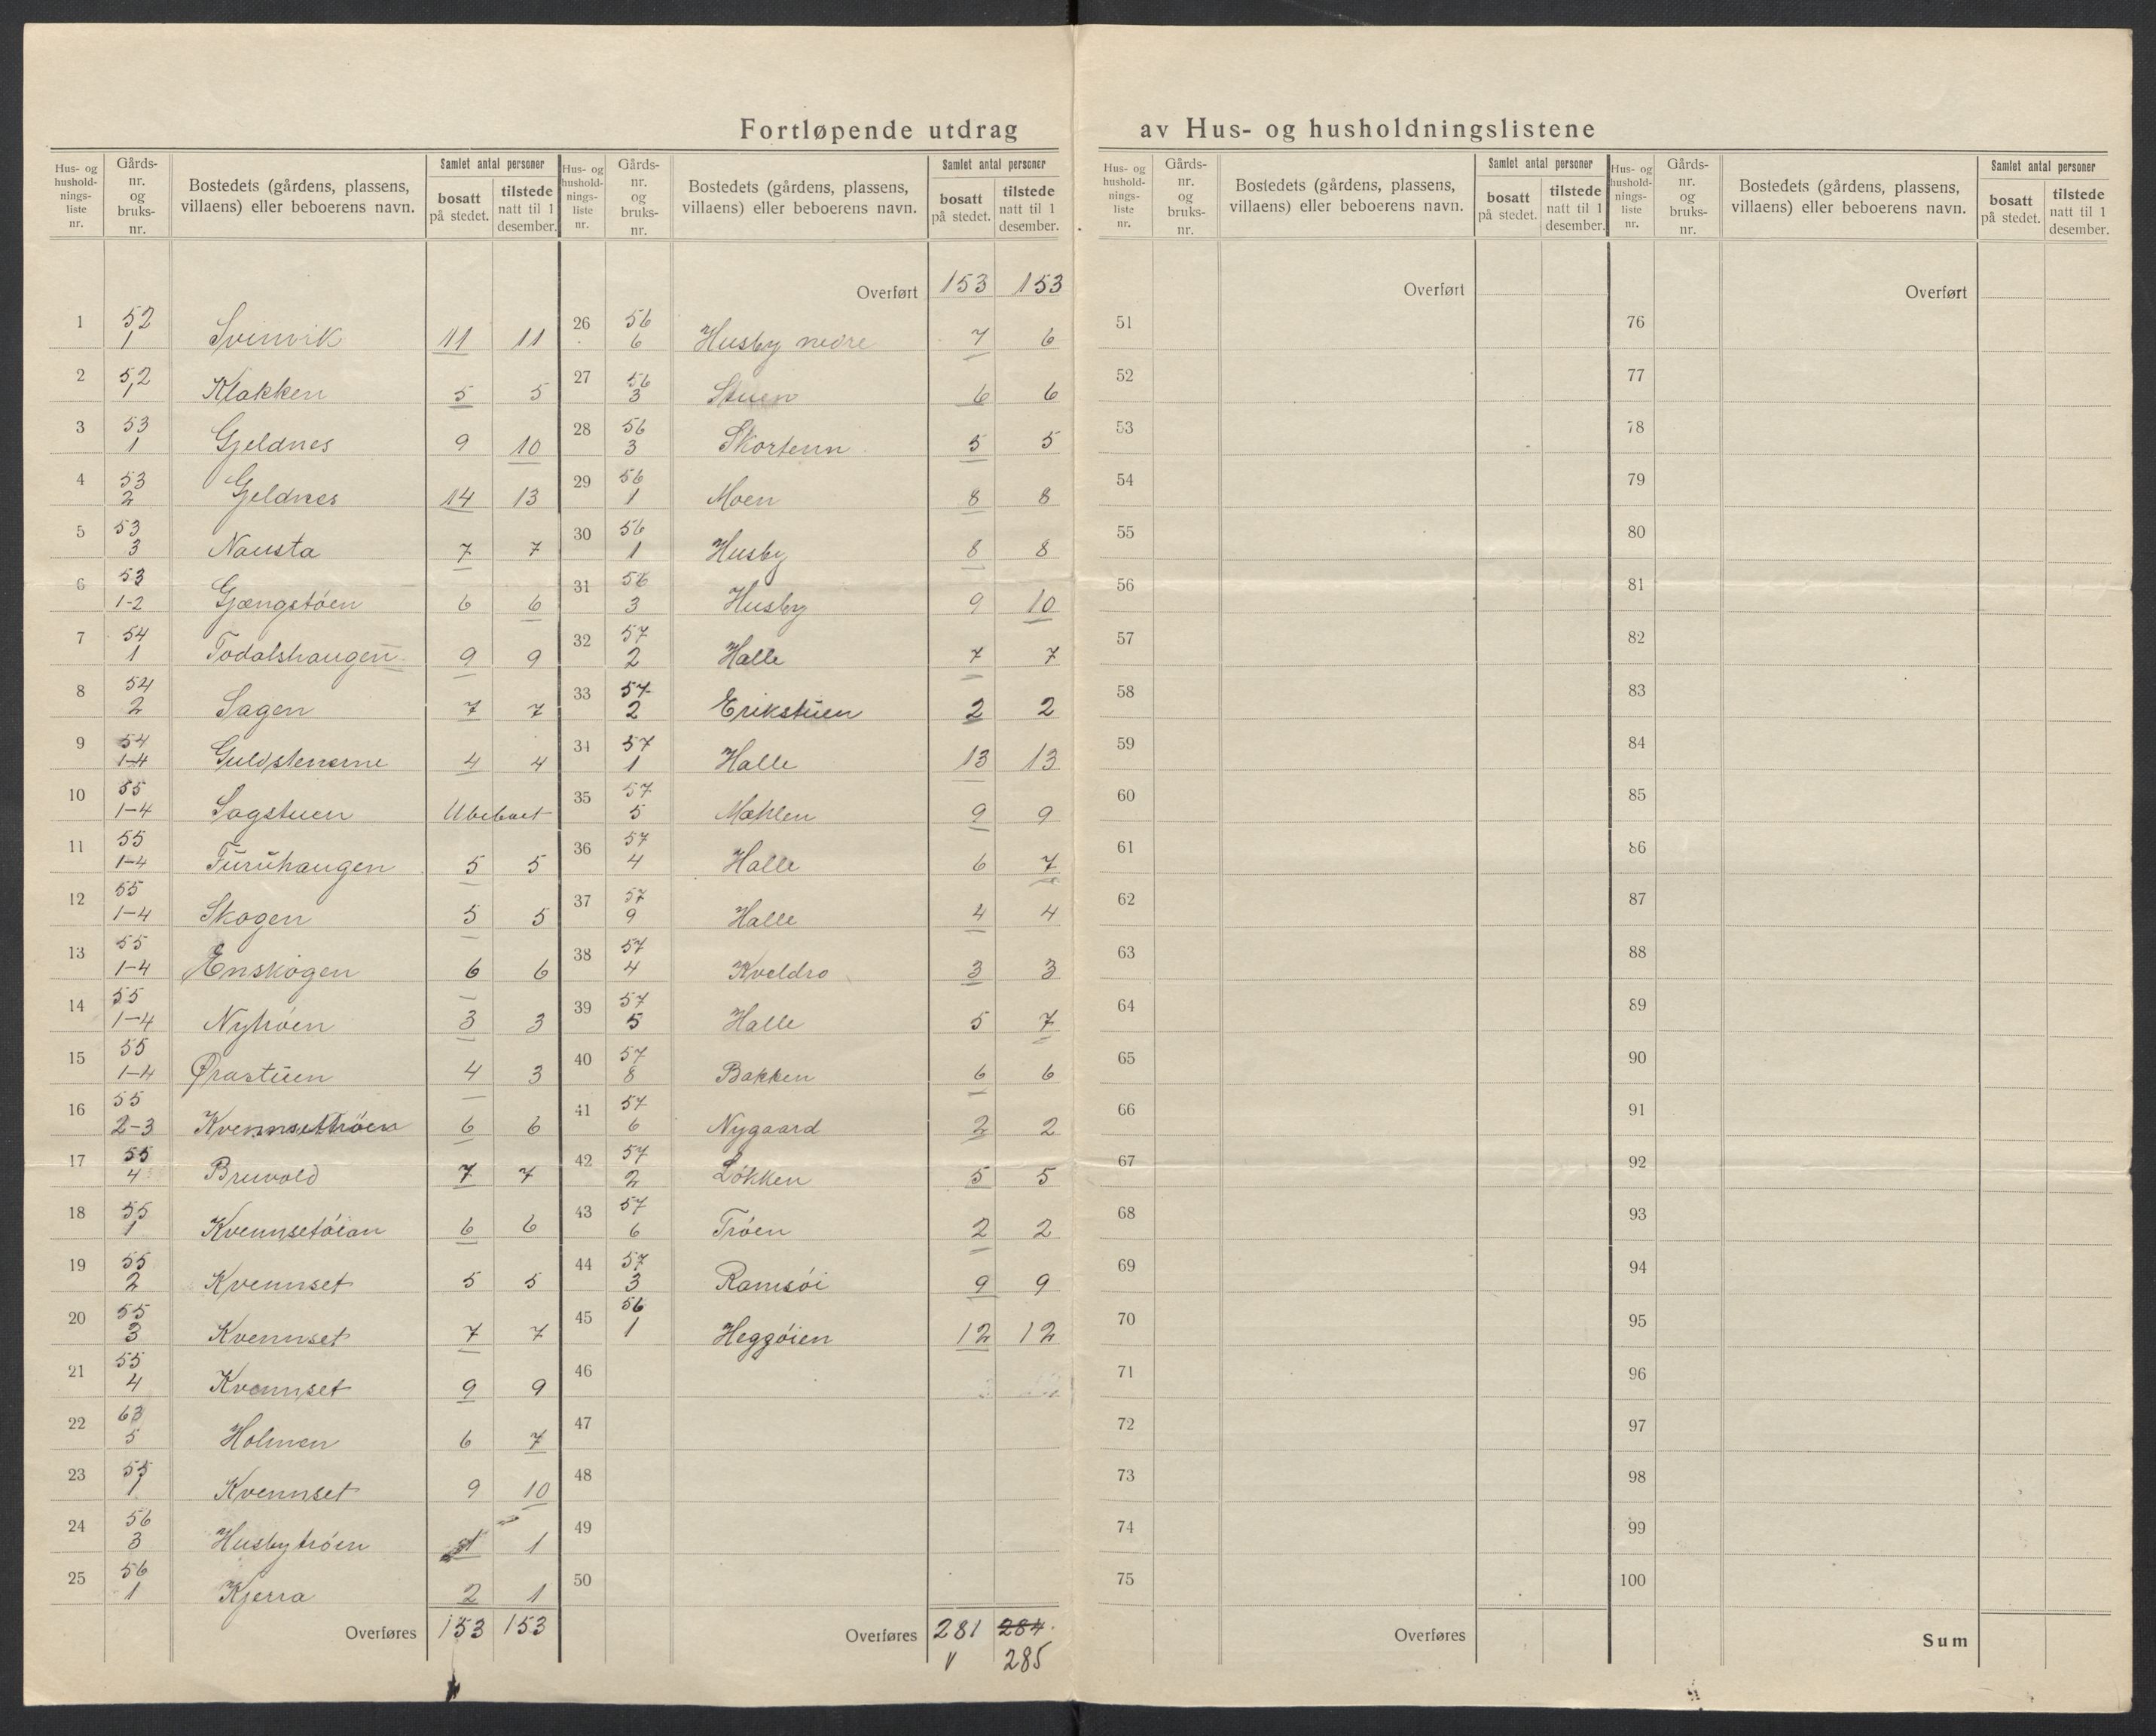 Fortløpende utdrag av Hus- og husholdningslistene
Hus- og husholdnings-liste nr. Gårds-nr. og bruks-nr. Bostedets (gårdens, plassens, villaens) eller beboerens navn. Samlet antal personer bosatt på stedet. tilstede natt til 1 desember.
1 52 1 Svinvik 11 11
2 52 1 Klakken 5 5
3 53 1 Gjeldnes 9 10
4 53 2 Gjeldnes 14 13
5 53 3 Nausta 7 7
6 53 1-2 Gjengstøen 6 6
7 54 1 Todalshaugen 9 9
8 54 2 Sagen 7 7
9 54 1-4 Guldstenerne 4 4
10 55 1-4 Sagstuen Ubeboet
11 55 1-4 Furuhaugen 5 5
12 55 1-4 Skogen 5 5
13 55 1-4 Enskogen 6 6
14 55 1-4 Nytrøen 3 3
15 55 1-4 Ørastuen 4 3
16 55 2-3 Kvennsettrøen 6 6
17 55 4 Bruvold 7 7
18 55 1 Kvennsetøian 6 6
19 55 2 Kvennset 5 5
20 55 3 Kvennset 7 7
21 55 4 Kvennset 9 9
22 63 5 Holmen 6 7
23 55 1 Kvennset 9 10
24 56 3 Husbytrøen 1 1
25 56 1 Kjerra 2 1
Overføres 153 153
Hus- og husholdnings-liste nr. Gårds-nr. og bruks-nr. Bostedets (gårdens, plassens, villaens) eller beboerens navn. Samlet antal personer bosatt på stedet. tilstede natt til 1 desember.
Overført 153 153
26 56 6 Husby nedre 7 6
27 56 3 Stuen 6 6
28 56 3 Skortenn 5 5
29 56 1 Moen 8 8
30 56 1 Husby 8 8
31 56 3 Husby 9 10
32 57 2 Halle 7 7
33 57 2 Erikstuen 2 2
34 57 1 Halle 13 13
35 57 5 Mæhlen 9 9
36 57 4 Halle 6 7
37 57 9 Halle 4 4
38 57 4 Kveldro 3 3
39 57 5 Halle 5 7
40 57 8 Bakken 6 6
41 57 6 Nygaard 2 2
42 57 2 Løkken 5 5
43 57 6 Trøen 2 2
44 57 3 Ramsøi 9 9
45 56 1 Heggøien 12 12
46
47
48
49
50
Overføres 281 284
285
Hus- og husholdnings-liste nr. Gårds-nr. og bruks-nr. Bostedets (gårdens, plassens, villaens) eller beboerens navn. Samlet antal personer bosatt på stedet. tilstede natt til 1 desember.
Overført
51
52
53
54
55
56
57
58
59
60
61
62
63
64
65
66
67
68
69
70
71
72
73
74
75
Overføres
Hus- og husholdnings-liste nr. Gårds-nr. og bruks-nr. Bostedets (gårdens, plassens, villaens) eller beboerens navn. Samlet antal personer bosatt på stedet. tilstede natt til 1 desember.
Overført
76
77
78
79
80
81
82
83
84
85
86
87
88
89
90
91
92
93
94
95
96
97
98
99
100
Sum